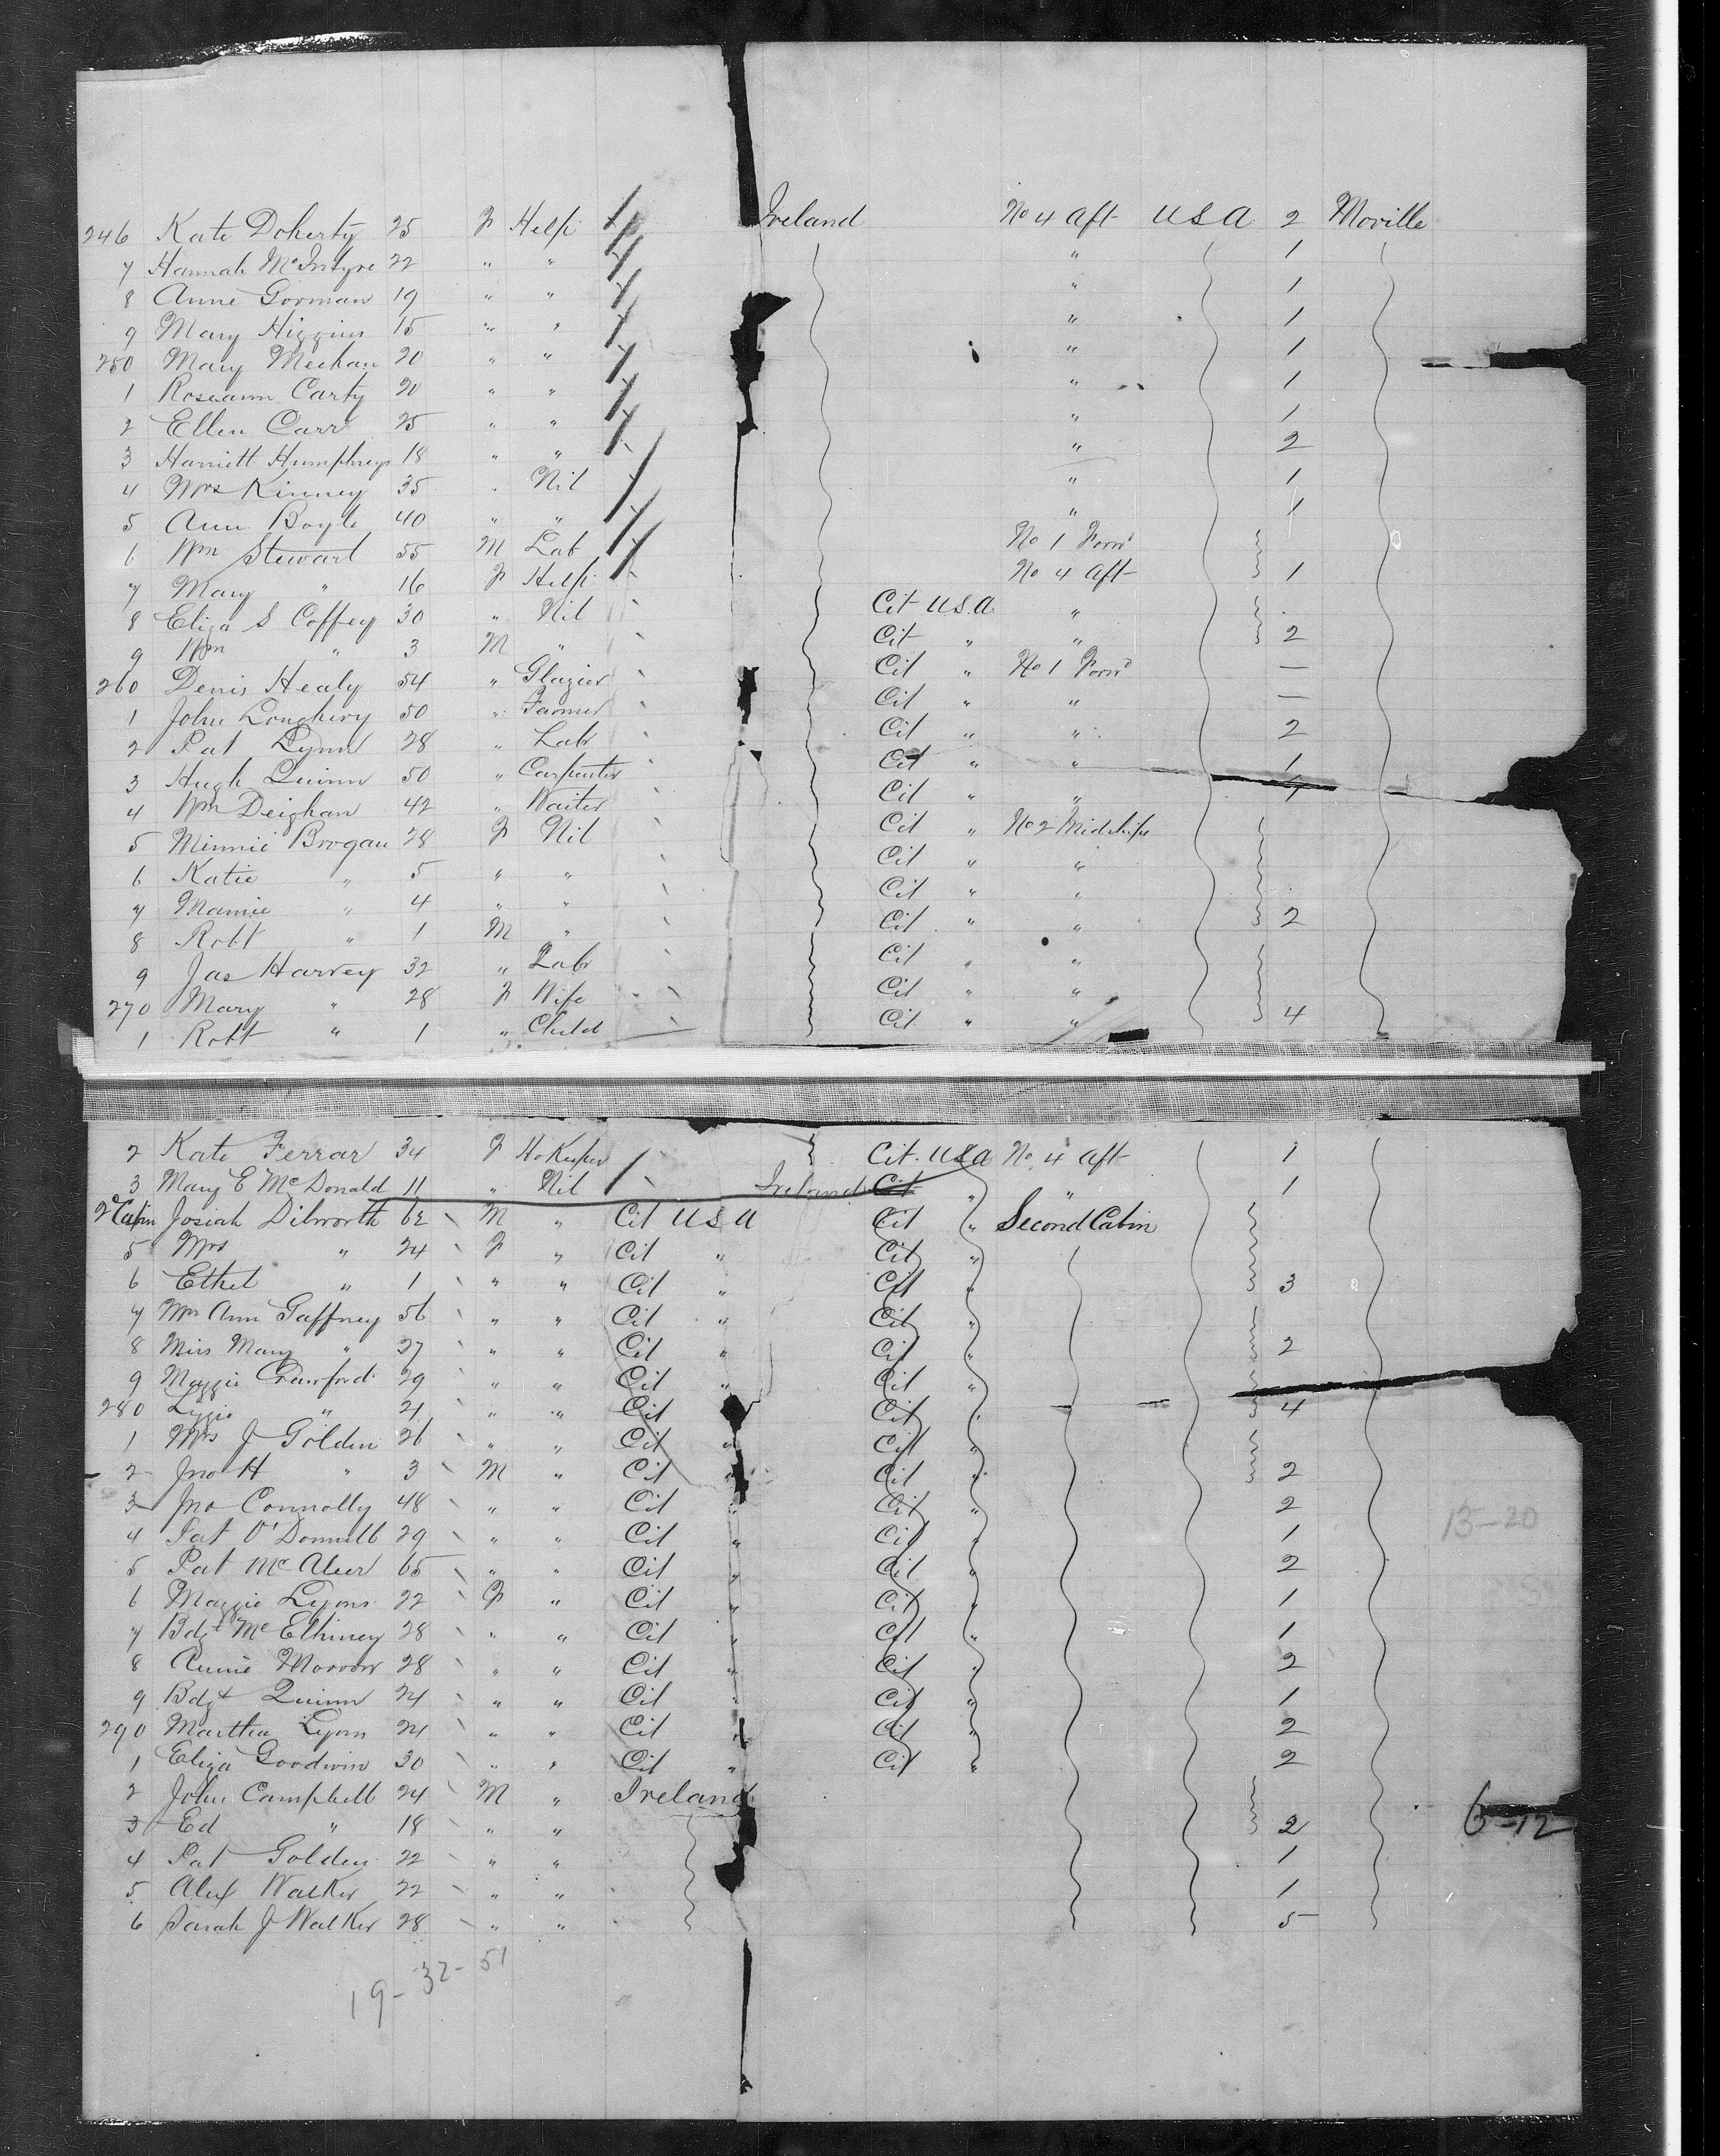 246 Kate Doherty 25 F Help Ireland No 4 Aft USA 2 Moville
7 Hannah McIntyre 22 " " " 1
8 Anne Gorman 19 " " " 1
9 Mary Higgins 15 " " " 1
250 Mary Meehan 20 " " " 1
1 Roseann Carty 20 " " " 1
2 Ellen Carr 25 " " " 1
3 Harriett Humphreys 18 " " " 2
4 Mrs Kinney 35 " Nil " 1
5 Ann Boyle 40 " " " 1
6 Wm Stewart 55 M Lab No 1 Forwd
7 Mary " 16 F Help No 4 Aft 1
8 Eliza S Coffey 30 " Nil Cit U.S.A. "
9 Wm " 3 M " Cit " " 2
260 Denis Healy 54 " Glazier Cit " No 1 Forwd —
1 John Loughery 50 " Farmer Cit " " —
2 Pat Lynn 28 " Labr Cit " " 2
3 Hugh Quinn 50 " Carpenter Cit " " 1
4 Wm Deighan 42 " Waiter Cit " " 1
5 Minnie Brogan 28 F Nil Cit " No 2 Midships
6 Katie " 5 " " Cit " "
7 Mamie " 4 " " Cit " "
8 Robt " 1 M " Cit " " 2
9 Jas Harvey 32 " Labr Cit " "
270 Mary " 28 F Wife Cit " "
1 Robt " 1 " Child Cit " " 4
2 Kate Ferrar 34 F HoKeeper Cit. USA No. 4 Aft 1
3 Mary E McDonald 11 " Nil Ireland Cit " " 1
2d Cabin Josiah Dilworth 62 M " Cit USA Cit " Second Cabin
5 Mrs " 24 F " Cit " Cit "
6 Ethel " 1 " " Cit " Cit " 3
7 Mrs Ann Gaffney 56 " " Cit " Cit "
8 Miss Mary " 27 " " Cit " Cit " 2
9 Maggie Crawford 29 " " Cit " Cit "
280 Lizzie " 21 " " Cit " Cit " 4
1 Mrs J Golden 26 " " Cit " Cit "
2 Jno H " 3 M " Cit " Cit " 2
3 Jno Connolly 48 " " Cit " Cit " 2
13-20
4 Pat O'Donnell 29 " " Cit " Cit " 1
5 Pat McAleer 65 " " Cit " Cit " 2
6 Maggie Lyons 22 F " Cit " Cit " 1
7 Bdgt McElhiney 28 " " Cit " Cit " 1
8 Annie Morrow 28 " " Cit " Cit " 2
9 Bdgt Quinn 24 " " Cit " Cit " 1
290 Martha Lyons 24 " " Cit " Cit " 2
1 Eliza Goodwin 30 " " Cit " Cit " 2
2 John Campbell 24 M " Ireland
3 Ed " 18 " " 2 6-12
4 Pat Golden 22 " " 1
5 Alex Walker 22 " " 1
6 Sarah J Walker 28 " " 5
19-32-51